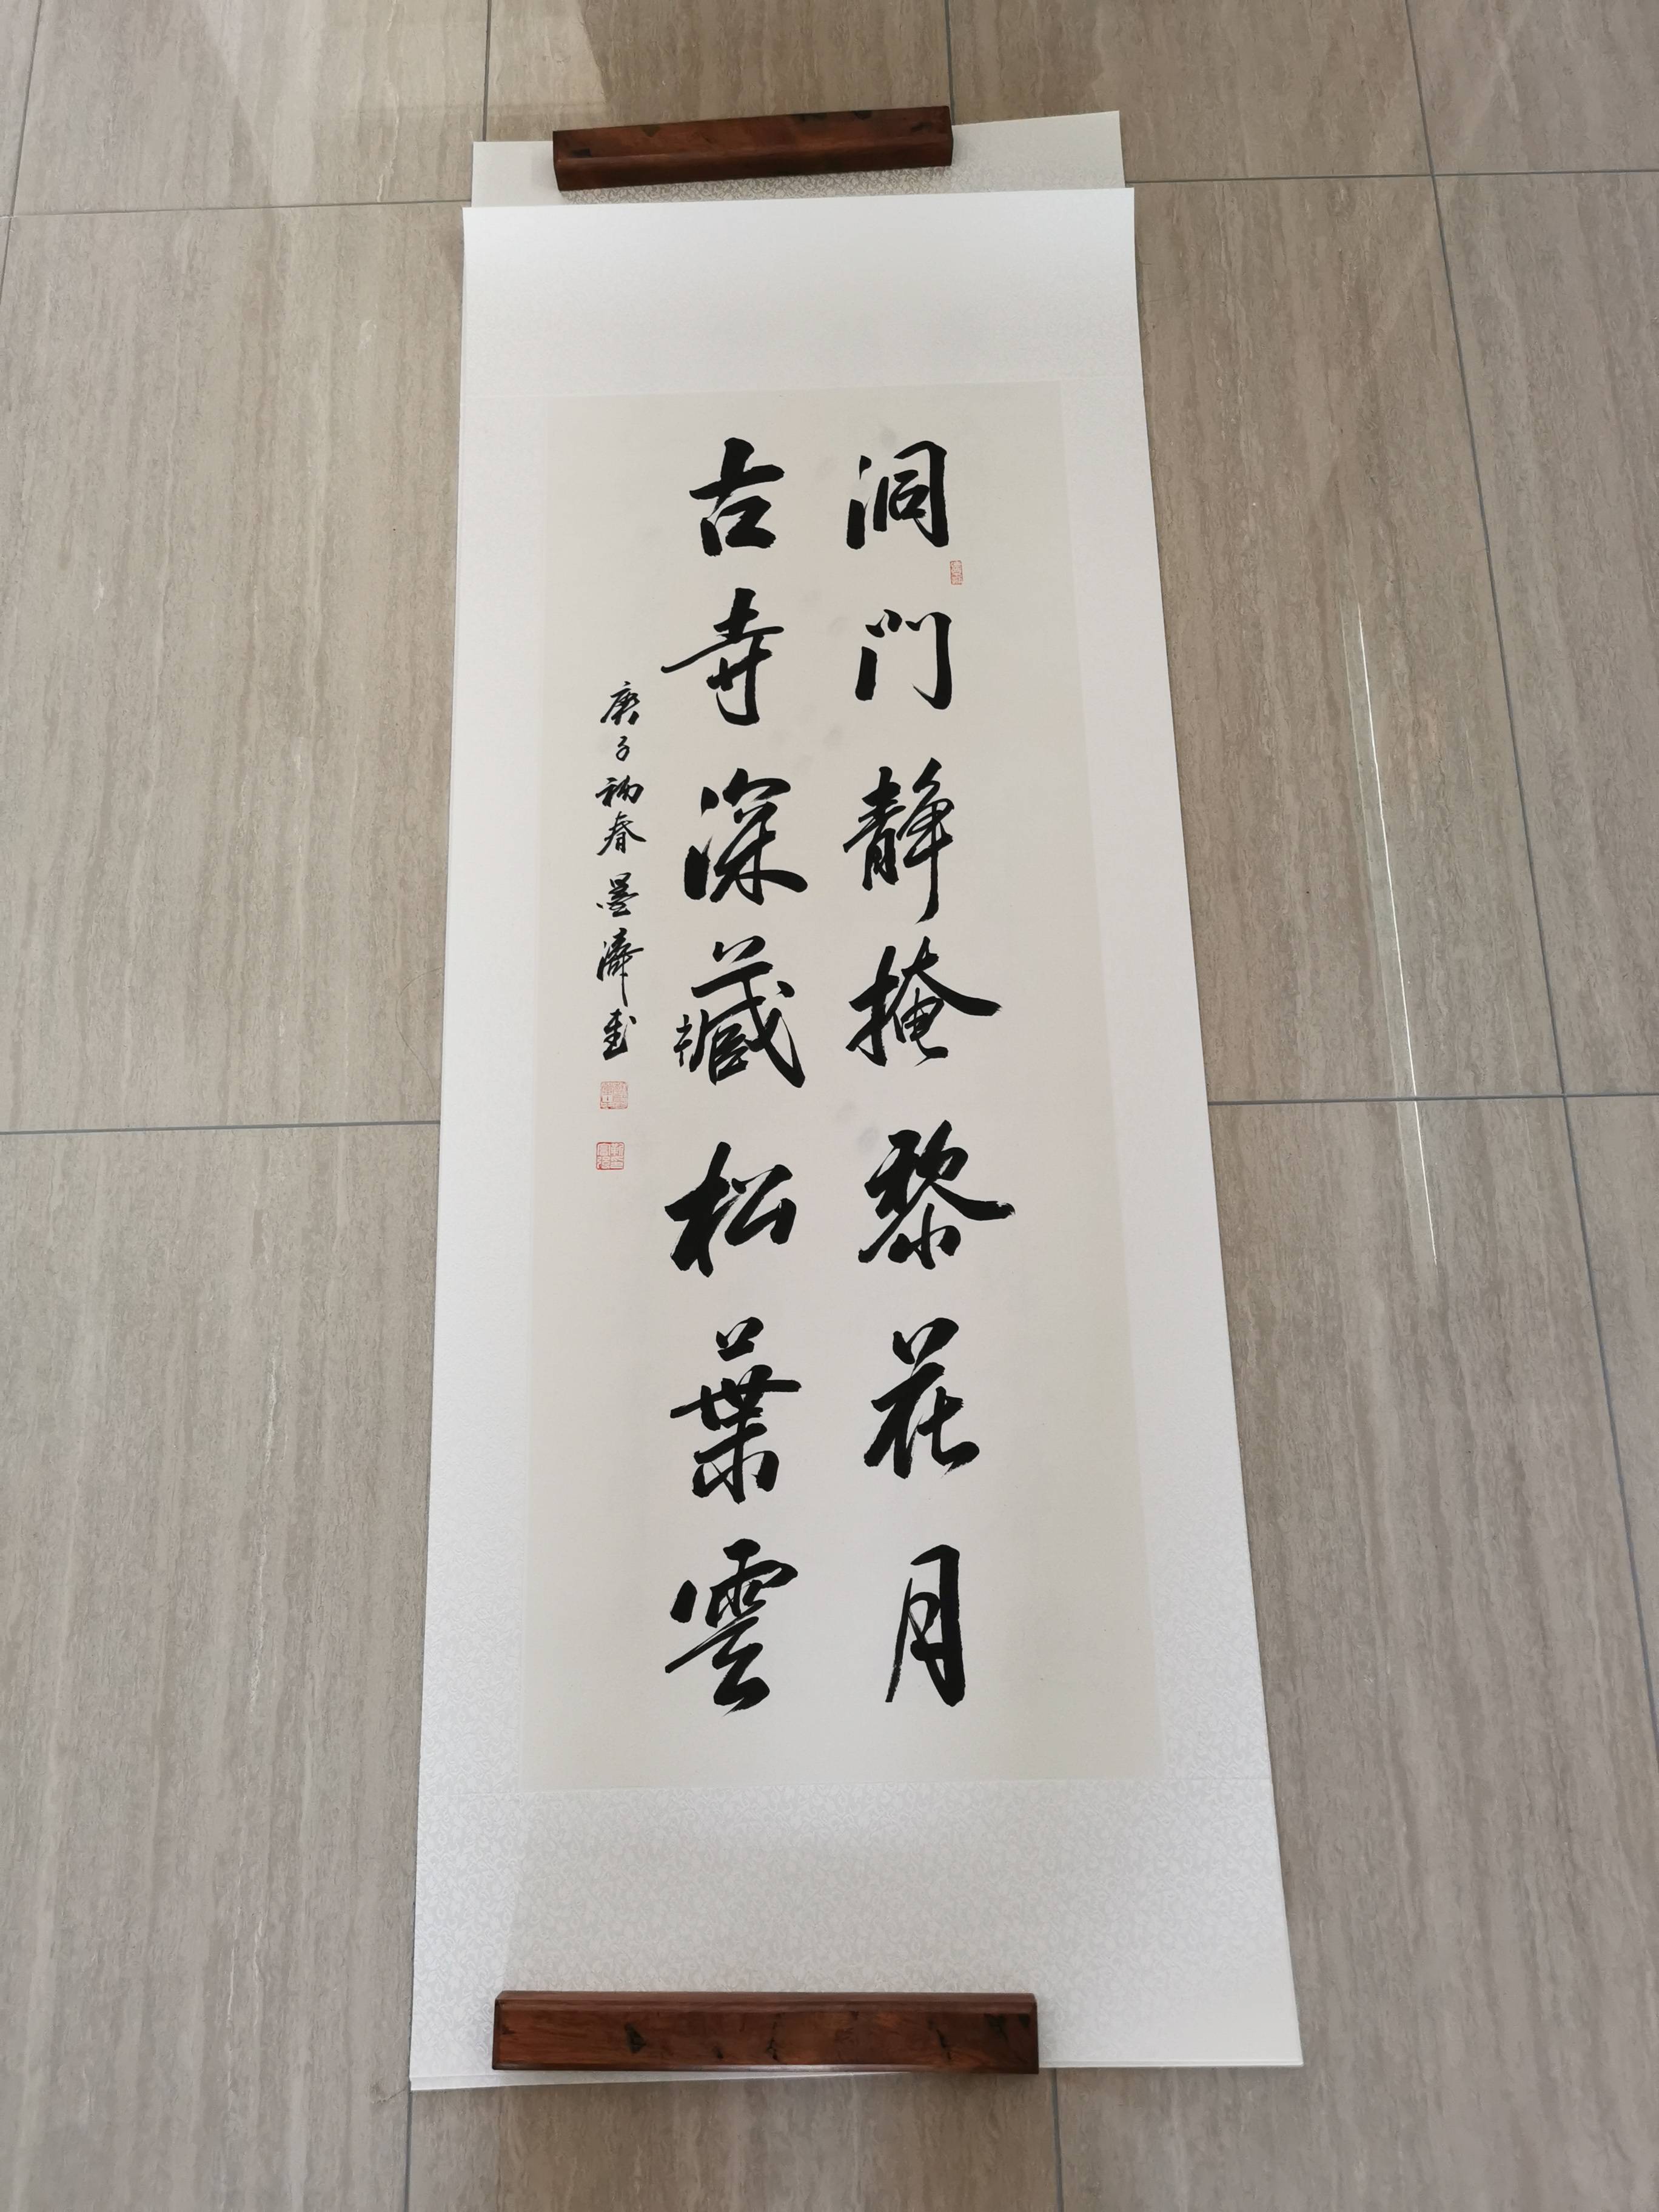 洞门静掩黎花月
古寺深藏松葉雲
庚子初春墨濤書